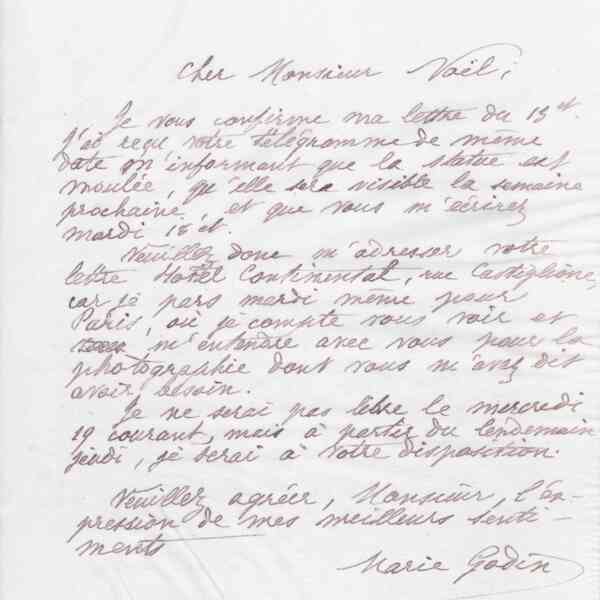 Cher Monsieur Noël,
Je vous confirme ma lettre du 13 ct.
J'ai reçu votre télégramme de même
date m'informant que la statue est
moulée, qu'elle sera visible la semaine
prochaine et que vous m'écrirez
mardi 18 ct.
Veuillez donc m'adresser votre
lettre Hôtel Continental, rue Castiglione,
car je pars mardi même pour
Paris, où je compte vous voir et
m'entendre avec vous pour la
photographie dont vous m'avez dit
avoir besoin.
Je ne serai pas libre le mercredi
19 courant, mais à partir du lendemain
jeudi, je serai à votre disposition.
Veuillez agréer, Monsieur, l'ex-
pression de mes meilleurs senti-
ments
Marie Godin